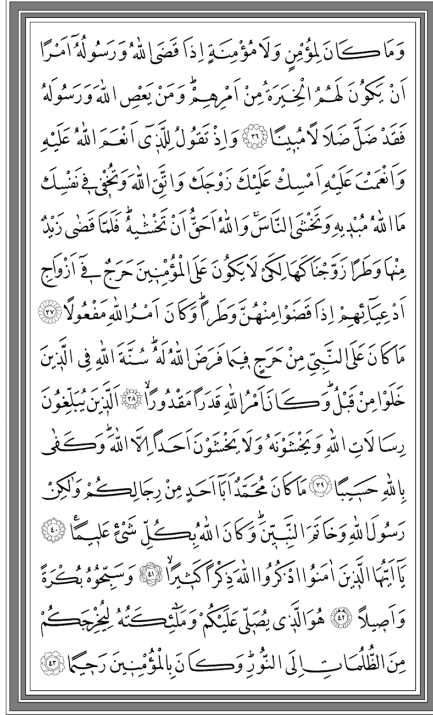 وَمَا كَانَ لِمُؤْمِنٍ وَلَا مُؤْمِنَةٍ اِذَا قَضَى اللّٰهُ وَرَسُولُهُٓ اَمْرًا
اَنْ يَكُونَ لَهُمُ الْخِيَرَةُ مِنْ اَمْرِهِمْۜ وَمَنْ يَعْصِ اللّٰهَ وَرَسُولَهُ
فَقَدْ ضَلَّ ضَلَالًا مُبٖينًا ﴿٣٦﴾ وَاِذْ تَقُولُ لِلَّذٖٓي اَنْعَمَ اللّٰهُ عَلَيْهِ
وَاَنْعَمْتَ عَلَيْهِ اَمْسِكْ عَلَيْكَ زَوْجَكَ وَاتَّقِ اللّٰهَ وَتُخْفٖي فٖي نَفْسِكَ
مَا اللّٰهُ مُبْدٖيهِ وَتَخْشَى النَّاسَۚ وَاللّٰهُ اَحَقُّ اَنْ تَخْشٰيهُۜ فَلَمَّا قَضٰى زَيْدٌ
مِنْهَا وَطَرًا زَوَّجْنَاكَهَا لِكَيْ لَا يَكُونَ عَلَى الْمُؤْمِنٖينَ حَرَجٌ فٖٓي اَزْوَاجِ
اَدْعِيَٓائِهِمْ اِذَا قَضَوْا مِنْهُنَّ وَطَرًاۜ وَكَانَ اَمْرُ اللّٰهِ مَفْعُولًا ﴿٣٧﴾
مَا كَانَ عَلَى النَّبِيِّ مِنْ حَرَجٍ فٖيمَا فَرَضَ اللّٰهُ لَهُۜ سُنَّةَ اللّٰهِ فِي الَّذٖينَ
خَلَوْا مِنْ قَبْلُۜ وَكَانَ اَمْرُ اللّٰهِ قَدَرًا مَقْدُورًاۙ ﴿٣٨﴾ اَلَّذٖينَ يُبَلِّغُونَ
رِسَالَاتِ اللّٰهِ وَيَخْشَوْنَهُ وَلَا يَخْشَوْنَ اَحَدًا اِلَّا اللّٰهَۜ وَكَفٰى
بِاللّٰهِ حَسٖيبًا ﴿٣٩﴾ مَا كَانَ مُحَمَّدٌ اَبَٓا اَحَدٍ مِنْ رِجَالِكُمْ وَلٰكِنْ
رَسُولَ اللّٰهِ وَخَاتَمَ النَّبِيّٖنَۜ وَكَانَ اللّٰهُ بِكُلِّ شَيْءٍ عَلٖيمًاۚ ﴿٤٠﴾
يَٓا اَيُّهَا الَّذٖينَ اٰمَنُوا اذْكُرُوا اللّٰهَ ذِكْرًا كَثٖيرًاۙ ﴿٤١﴾ وَسَبِّحُوهُ بُكْرَةً
وَاَصٖيلًا ﴿٤٢﴾ هُوَ الَّذٖي يُصَلّٖي عَلَيْكُمْ وَمَلٰٓئِكَتُهُ لِيُخْرِجَكُمْ
مِنَ الظُّلُمَاتِ اِلَى النُّورِۜ وَكَانَ بِالْمُؤْمِنٖينَ رَحٖيمًا ﴿٤٣﴾